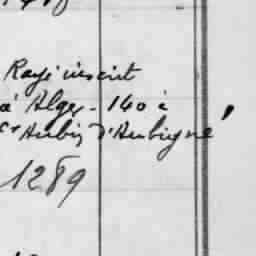 Rayé inscrit
à Alger - 140 c
St Aubin d'Aubigné
1289